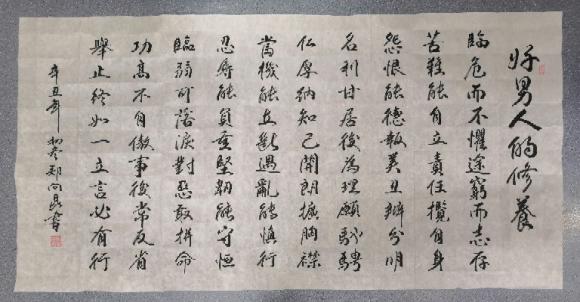 好男人的修養
臨危而不懼途窮而志存
苦難能自立責任攬自身
怨恨能德報美丑辨分明
名利甘居後為理願馳騁
仁厚納知己開朗擴胸襟
當機能立斷遇亂能慎行
忍辱能負重堅韌能守恒
臨弱可落淚對惡敢拼命
功高不自傲事後常反省
舉止終如一立言必有行
辛丑年初冬鄭向書